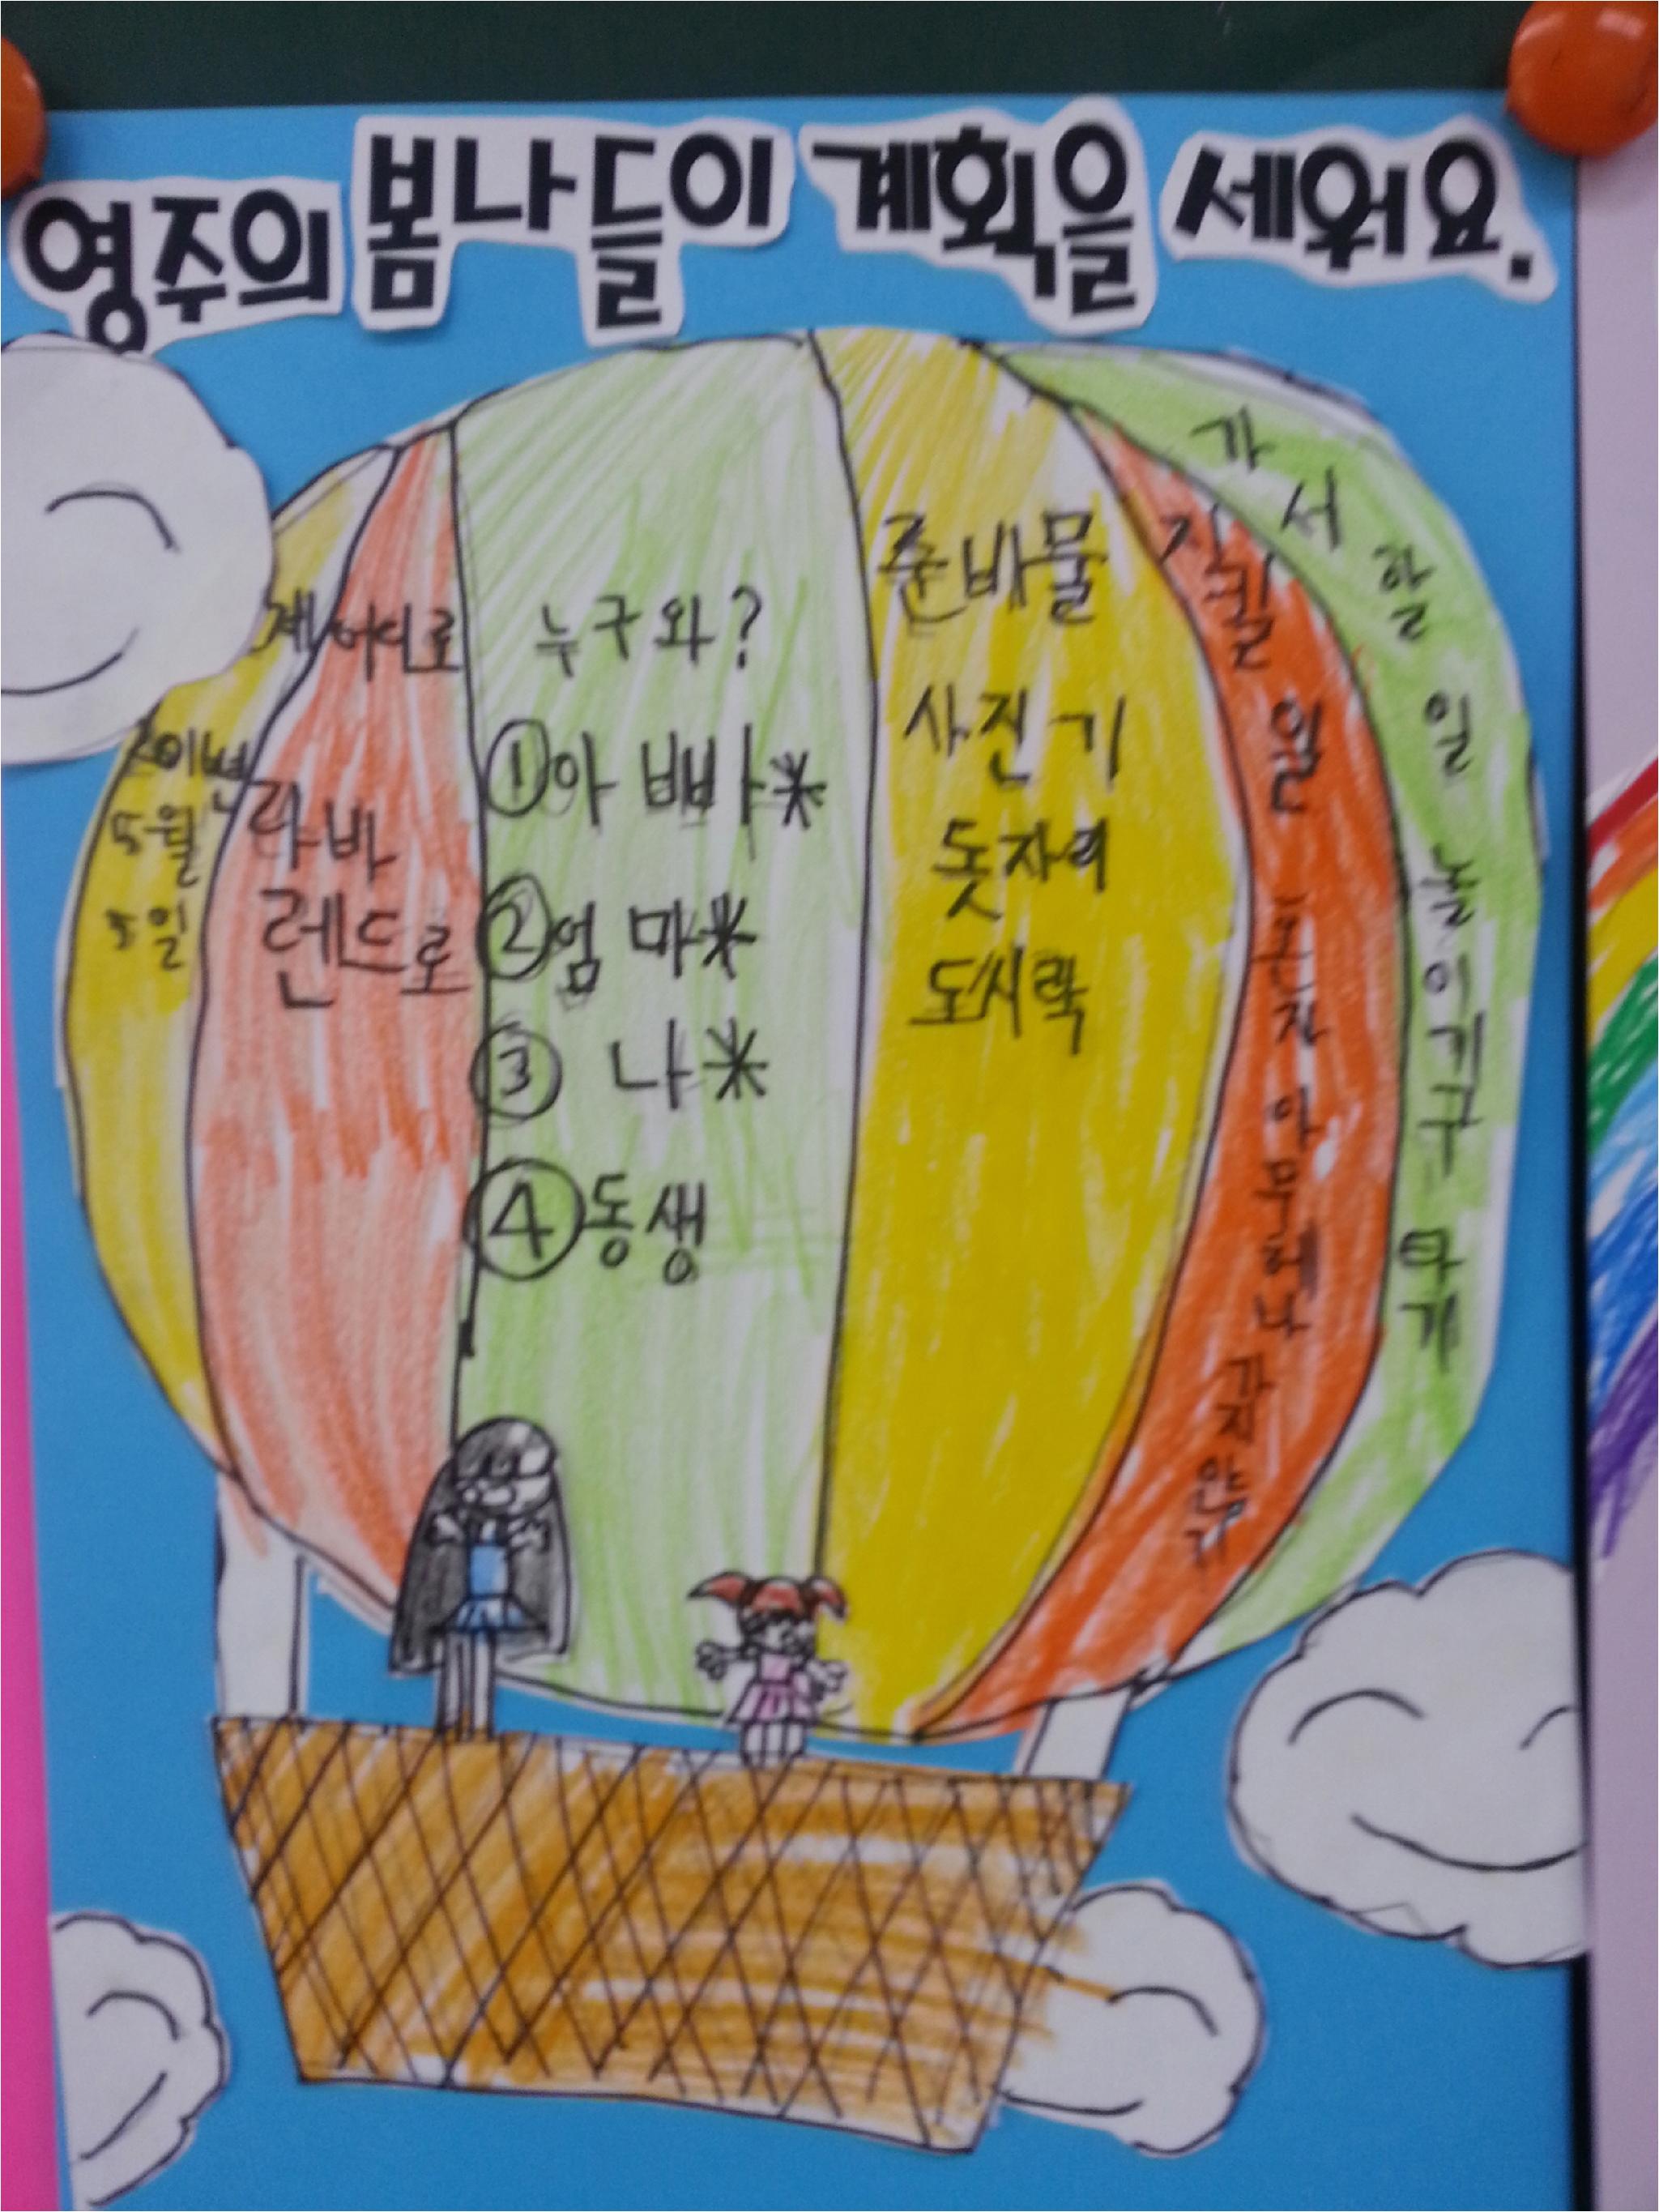 영주의 봄나들이 계획을 세워요.
이번
5월
5일
어디로
라바
렌드로
누구와?
①아빠*
②엄마*
③ 나*
④동생
준바물
사진기
돗자리
도시락
지킬 일 혼자 아무데나 가지 않기
가서 할 일 놀이기구 타기